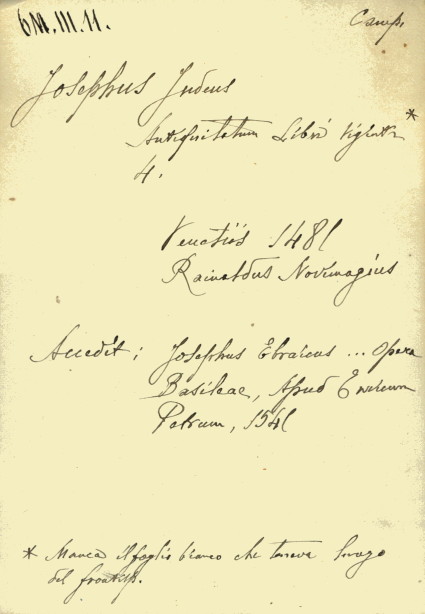 6M.III.11.
Camps
Josephus Judeus
Antiquitatum Libri viginti *
4.
Venetiis 1481
Rainaldus Novimagius
Accedit: Josephus Ebraicus ... Opera
Basileae, Apud Enricum
Petrum, 1541
* Manca il foglio bianco che teneva luogo
del frontisp.